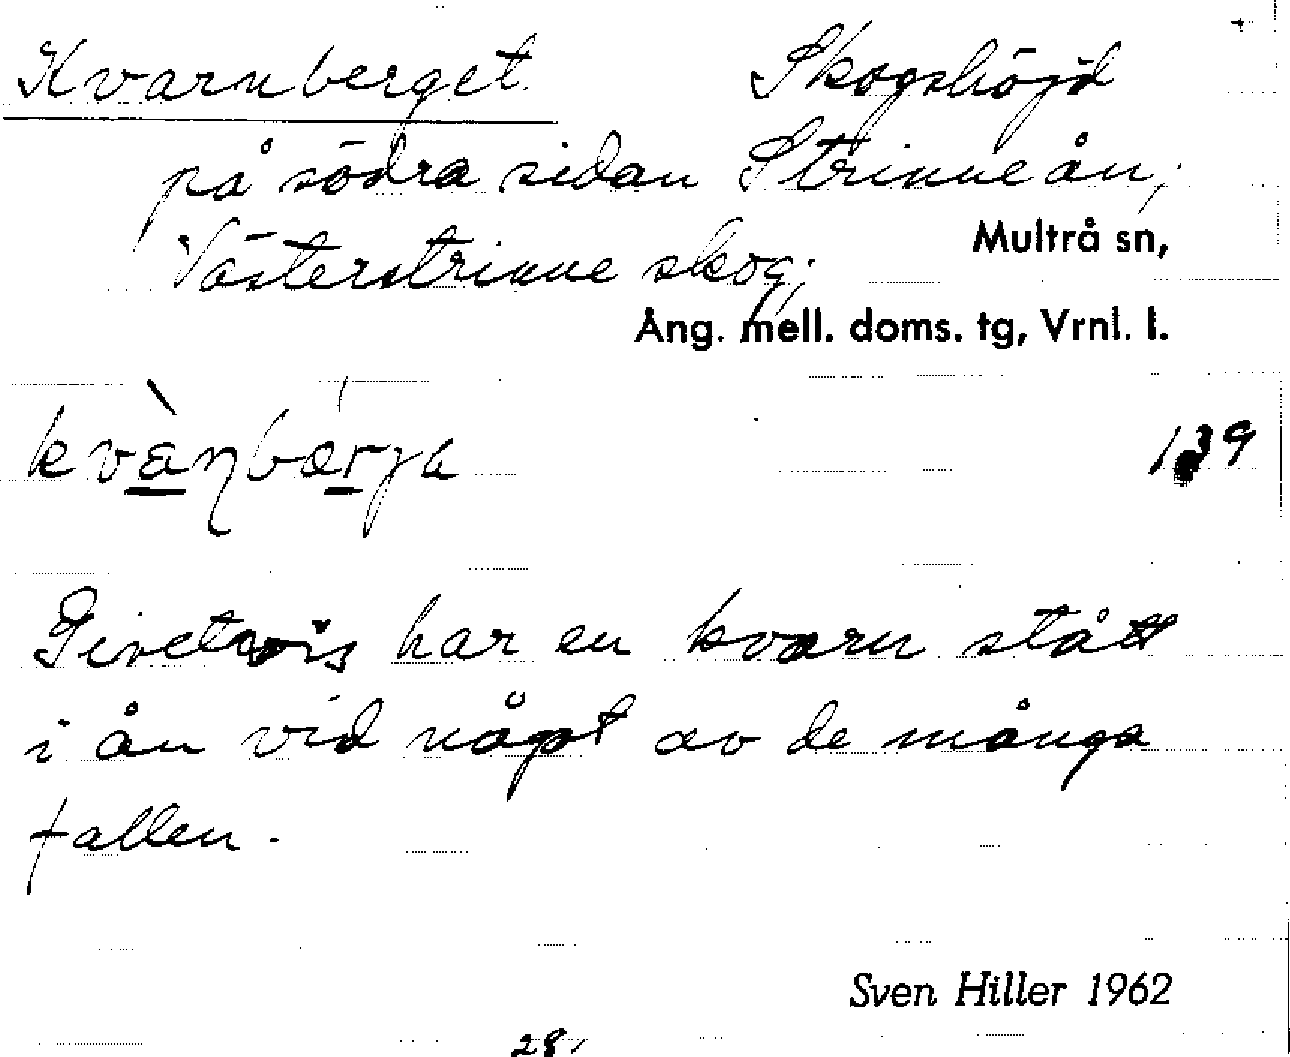 Kvarnberget. Skogshöjd
på södra sidan Strinneån,
Västerstrinne skog; Multrå sn,
Ång. mell. doms. tg, Vrnl. l.
139
Givetvis har en kvarn stått
i ån vid något av de många
fallen.
Sven Hiller 1962
28.